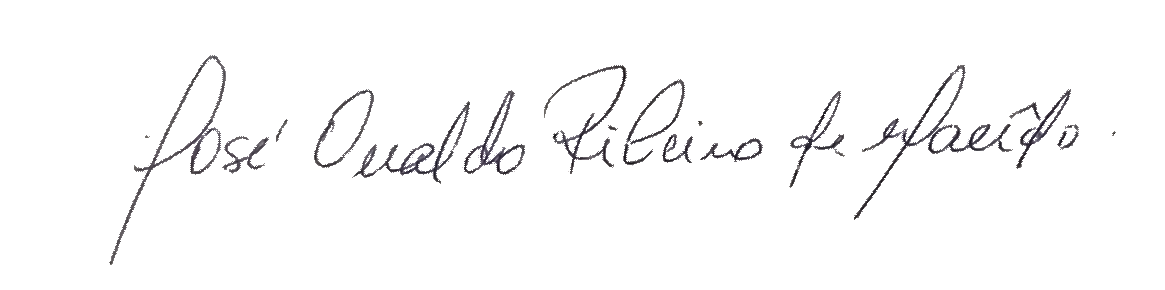 José Onaldo Ribeiro de Macêdo